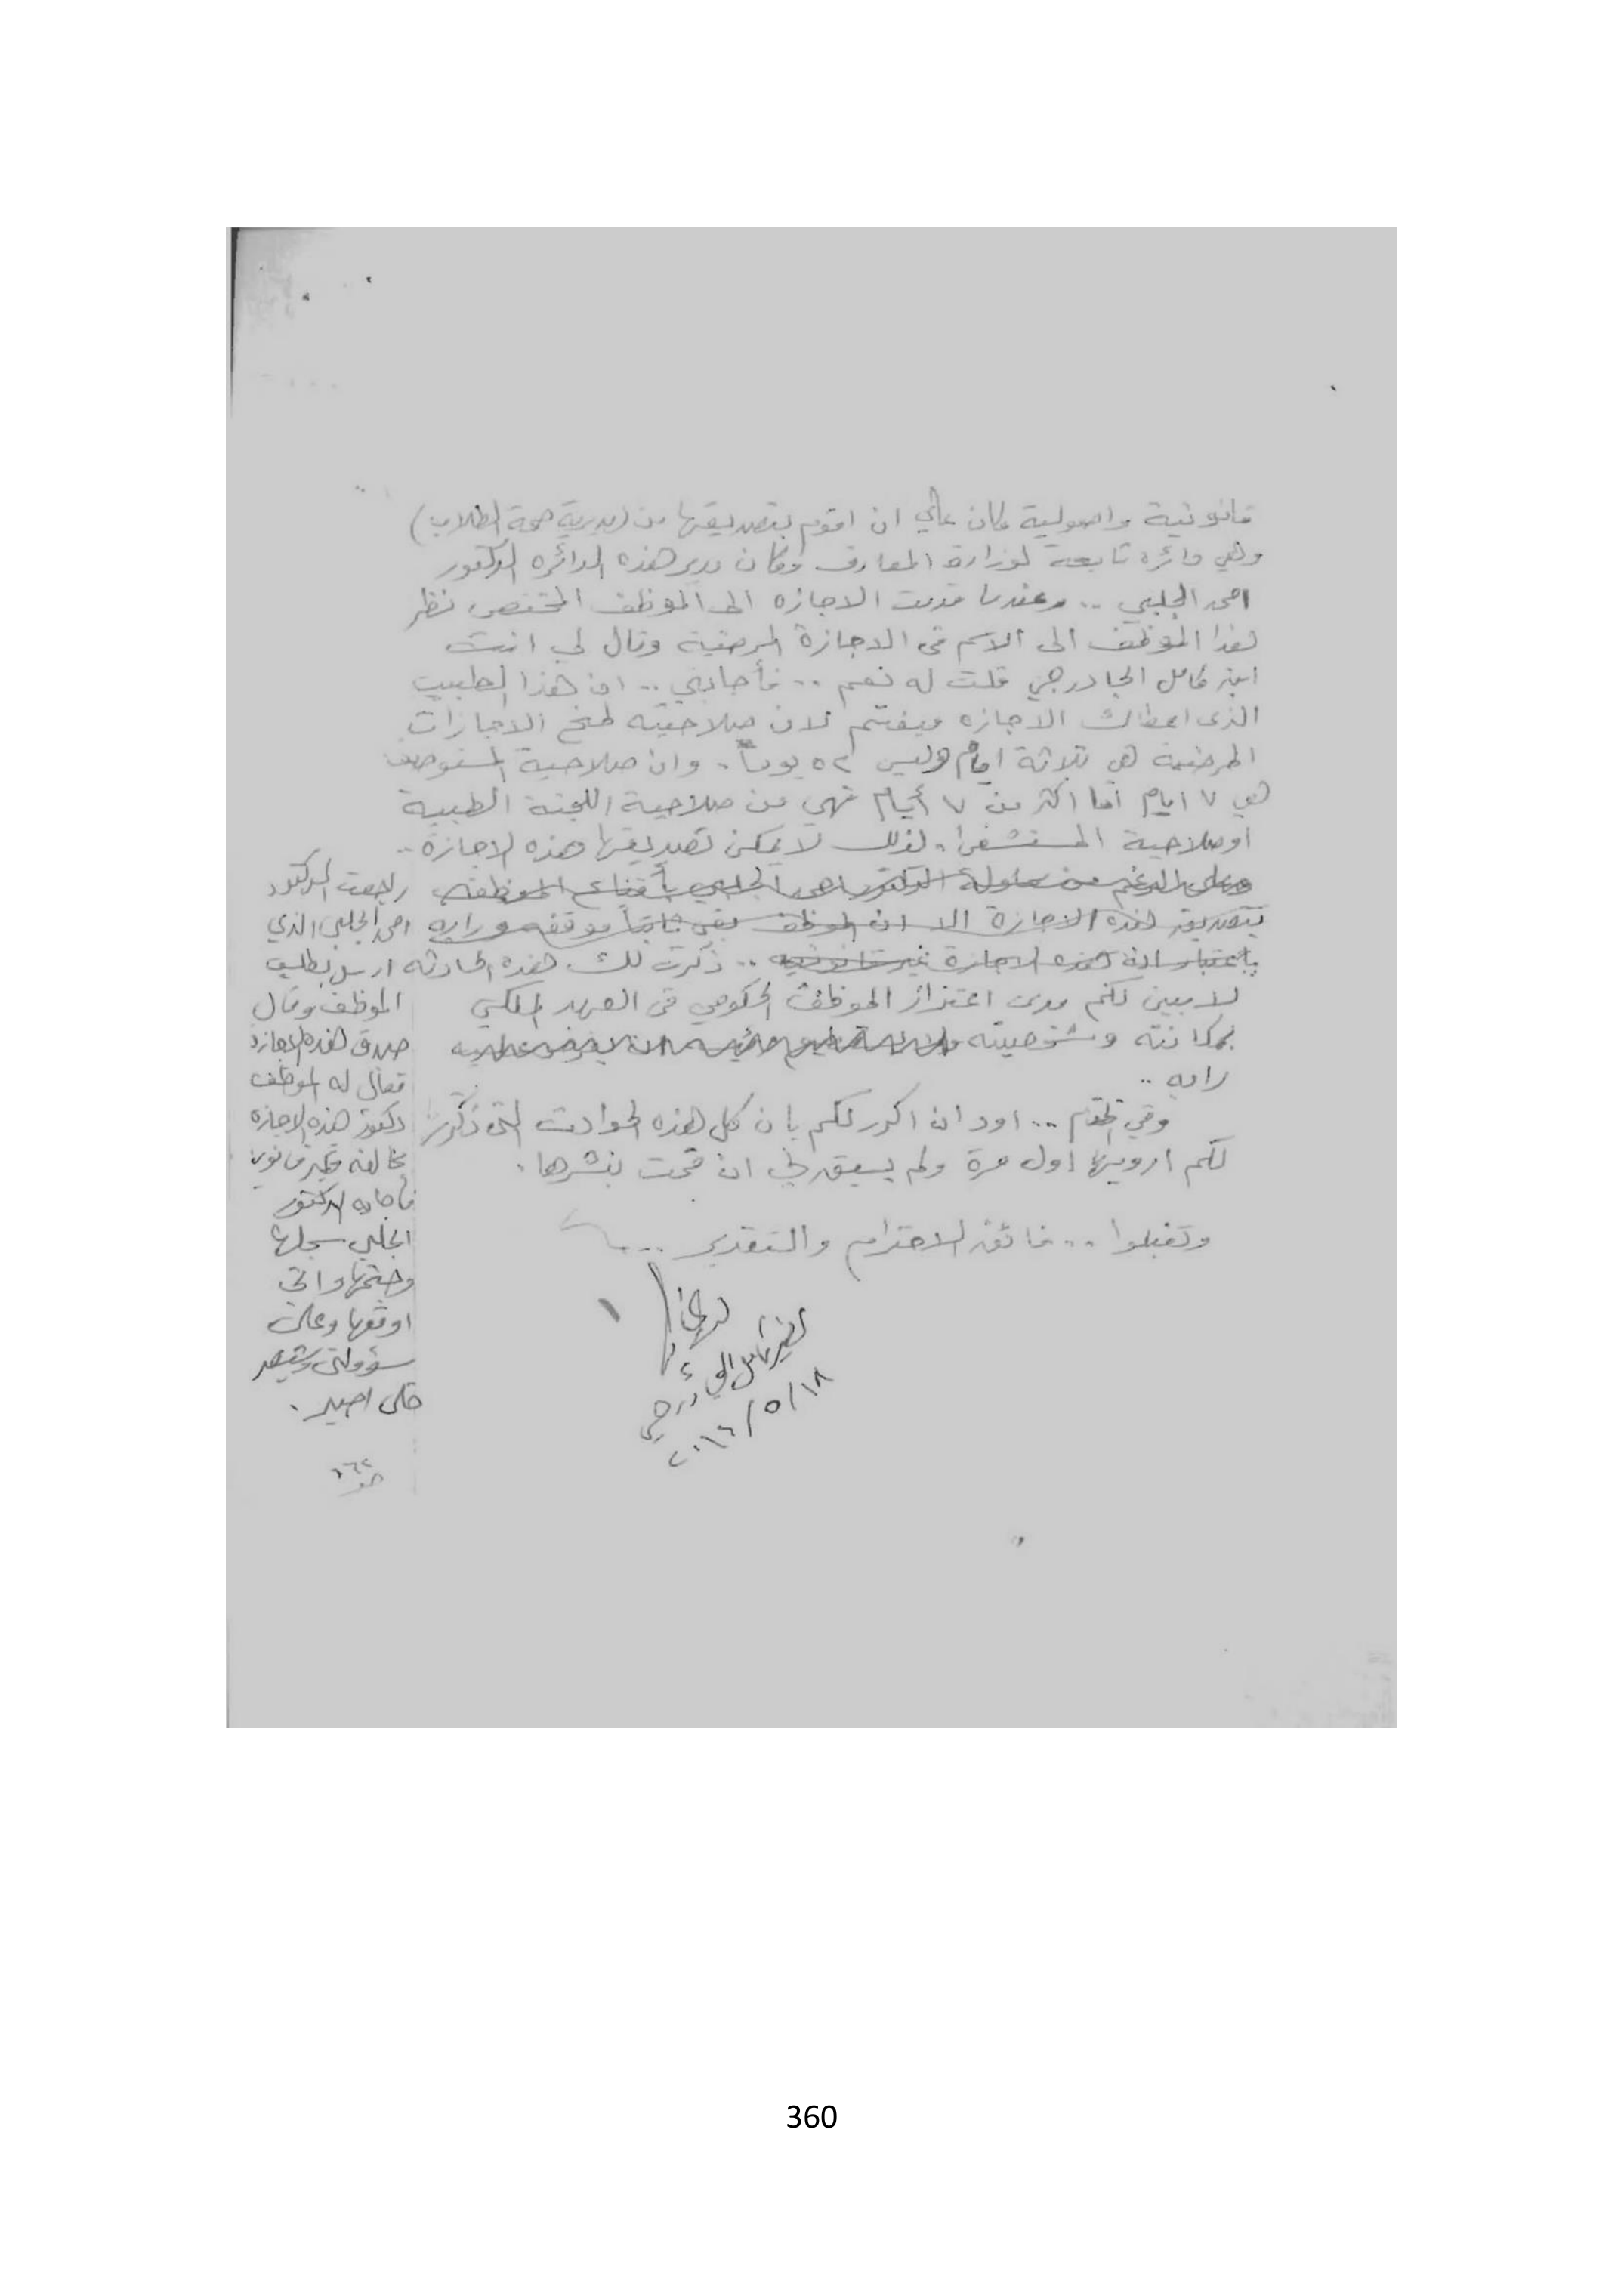 قانونية واصولية وكان علي ان اقوم بتصديقها من (مديرية صحة الطلاب)
وهي دائره تابعة لوزارة المعارف وكان مدير هذه الدائره الدكتور
احمد الجلبي .. وعندما قدمت الاجازه الى الموظف المختص نظر
هذا الموظف الى الاسم في الاجازة المرضية وقال لي انت
ابن كامل الجادرجي قلت له نعم .. فأجابني .. ان هذا الطبيب
الذي اعطاك الاجازه لان صلاحيته لمنح الاجازات
المرضية هي ثلاثة ايام وليس ٥٢ يوماً. وان صلاحية المستوصف
هي ٧ ايام اما اكثر من ٧ أيام فهي من صلاحية اللجنة الطبية
او صلاحية المستشفى. لذلك لا يمكن تصديقها هذه الاجازة ..
وعلى الرغم من محاولة الدكتور احمد الجلبي بأقناع الموظف
بتصديق هذه الاجازة الا ان الموظف بقي ثابتاً موقفه ورايه
باعتبار ان هذه الاجازة غير قانونيه .. ذكرت لك هذه الحادثه
لابين لكم مدى اعتزاز الموظف الحكومي في العهد الملكي
بمكانته وشخصيته
رايه ..
وفي الختام ... اود ان اكرر لكم بان كل هذه الحوادث التي ذكرتها
لكم ارويها اول مرة ولم يسبق لي ان قمت بنشرها.
وتقبلوا .. فائق الاحترام والتقدير ...
نصير كامل الجادرجي
٢٠١٦/٥/١٨
راجعت الدكتور
احمد الجلبي الذي
ارسل بطلب
الموظف وقال
صدق هذه الاجازة
فقال له الموظف
دكتور هذه الاجازه
مخالفه وغير قانونية
فأجابه الدكتور
الجلبي سجلها
وختمها واني
اوقعها وعلى
مسؤولتي
.
360